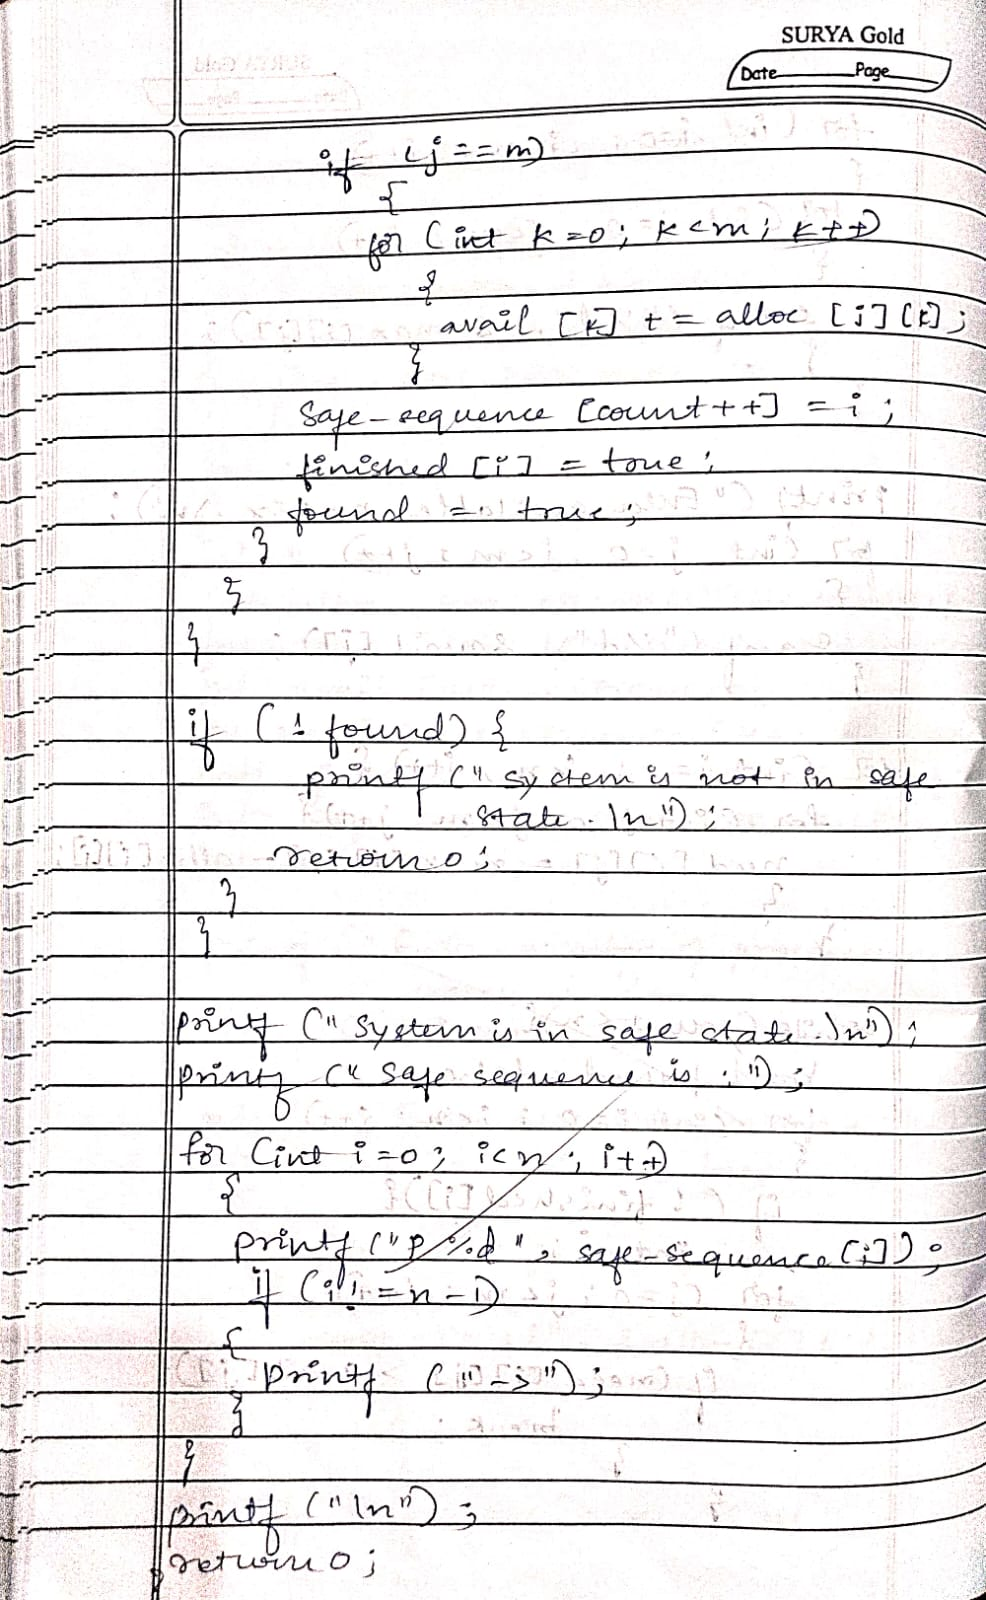 SURYA Gold
Date Page
if (j == m)
{
for (int k=0; k<m; k++)
{
avail [k] += alloc [i][k];
}
Safe-sequence [count++] = i;
finished [i] = true;
found = true;
}
}
}
if (! found) {
printf (" system is not in safe
state. \n");
return 0;
}
}
printf (" System is in safe state. \n");
printf (" Safe sequence is : ");
for (int i=0; i<n; i++)
{
printf ("P%d", safe-sequence[i]);
if (i != n-1)
{
printf ("->");
}
}
printf ("\n");
return 0;